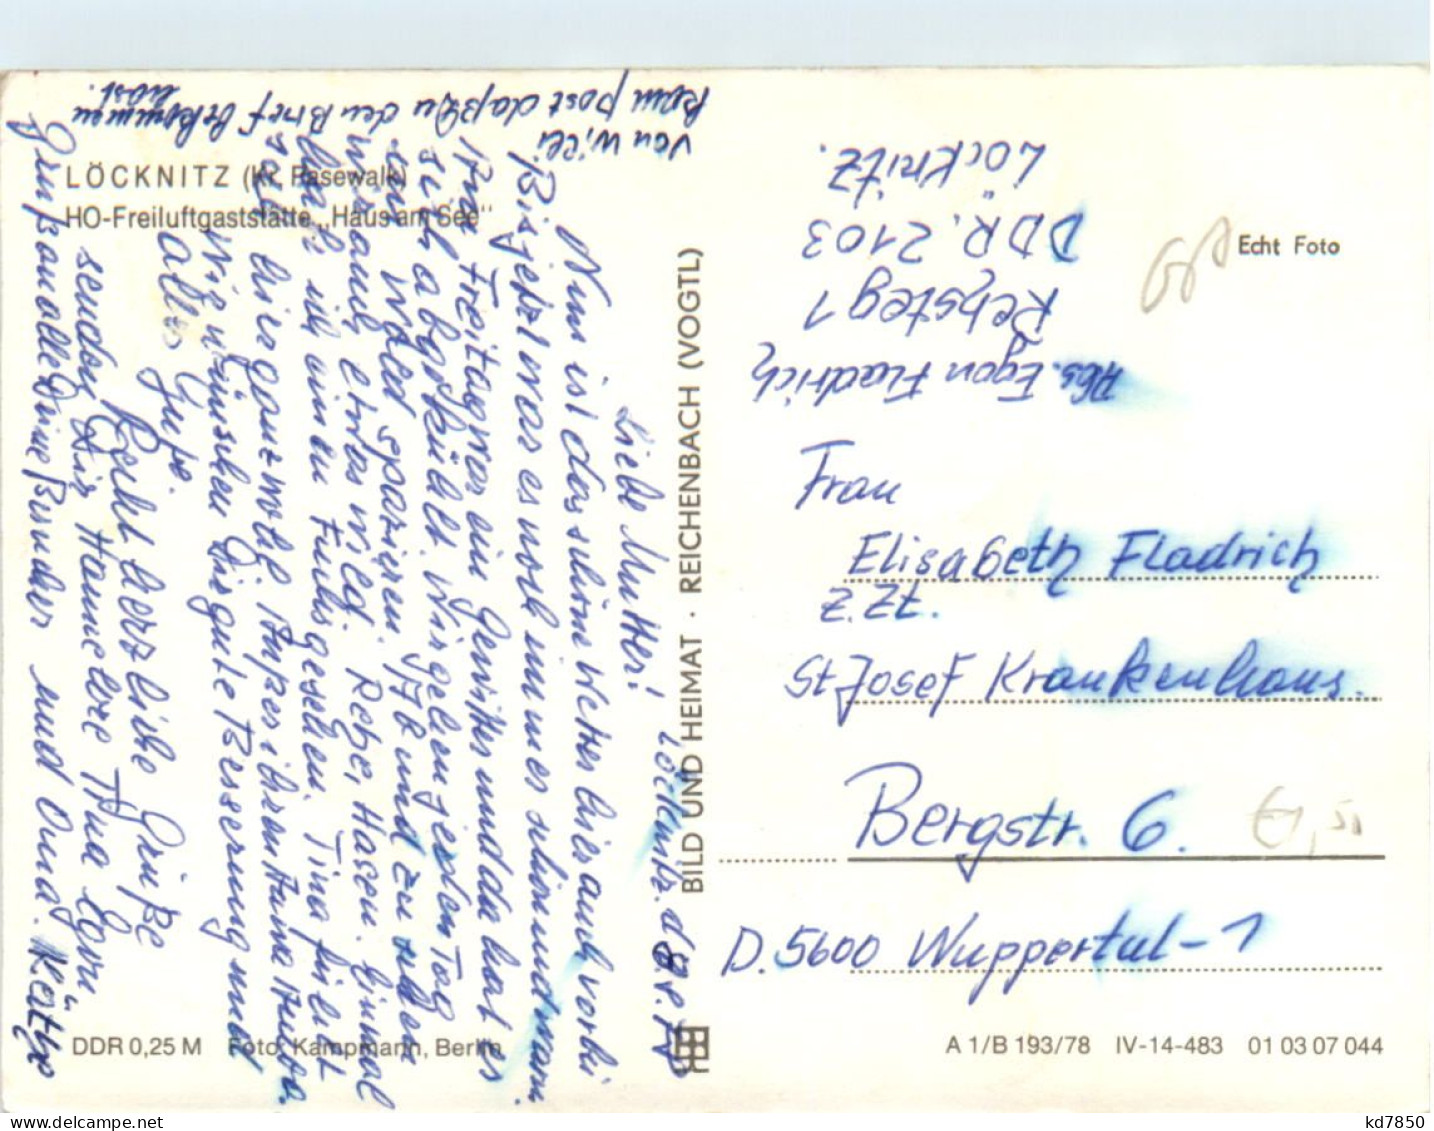 LÖCKNITZ (Kr. Pasewalk)
HO-Freiluftgaststätte „Haus am See"
Löcknitz. d
Liebe Mutter!
Nun ist das schöne Wetter hier auch vorbei
Bis jetzt war es noch immer schön und warm.
Am Freitag war ein Gewitter und da hat es
sich abgekühlt. Wir gehen jeden Tag
Wald spazieren. Ab und zu sehen
wir auch etwas Wild. Rehe, Hasen. Einmal
habe ich einen Fuchs gesehen. Tina gefällt
hier ganz wohl
Wir wünschen Dir gute Besserung und
alles Gute.
Recht herzliche Grüße
senden Dir Hannelore Tina Egon
Gruß an alle Deine Brüder und Oma. Käthe
von Willi
kam post daß Du den Brief bekommen
hast.
BILD UND HEIMAT · REICHENBACH (VOGTL)
Abs. Egon Fladrich
Rehsteg 1
DDR. 2103
Löcknitz.
Echt Foto
Frau
Elisabeth Fladrich
z.Zt.
St Josef Krankenhaus.
Bergstr. 6.
D. 5600 Wuppertal-1
DDR 0,25 M Foto: Kampmann, Berlin
A 1/B 193/78 IV-14-483 01 03 07 044
kd7850